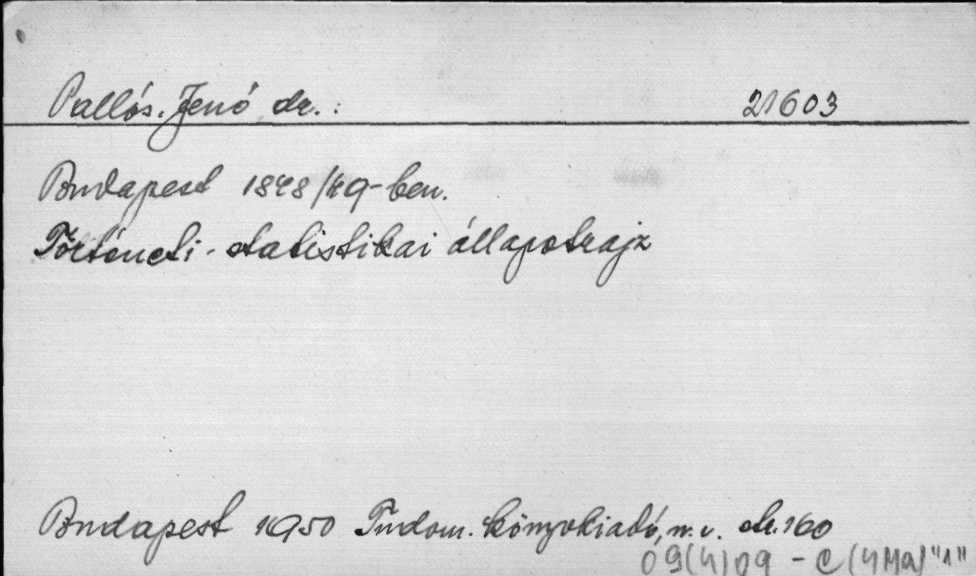 Pallós Jenő dr. : 21603
Budapest 1848/49-ben.
Történeti-statistikai állapotrajz
Budapest 1950 Tudom. Könyvkiadó, n. v. str. 160
09(4)09 - C (4Ma) "1"